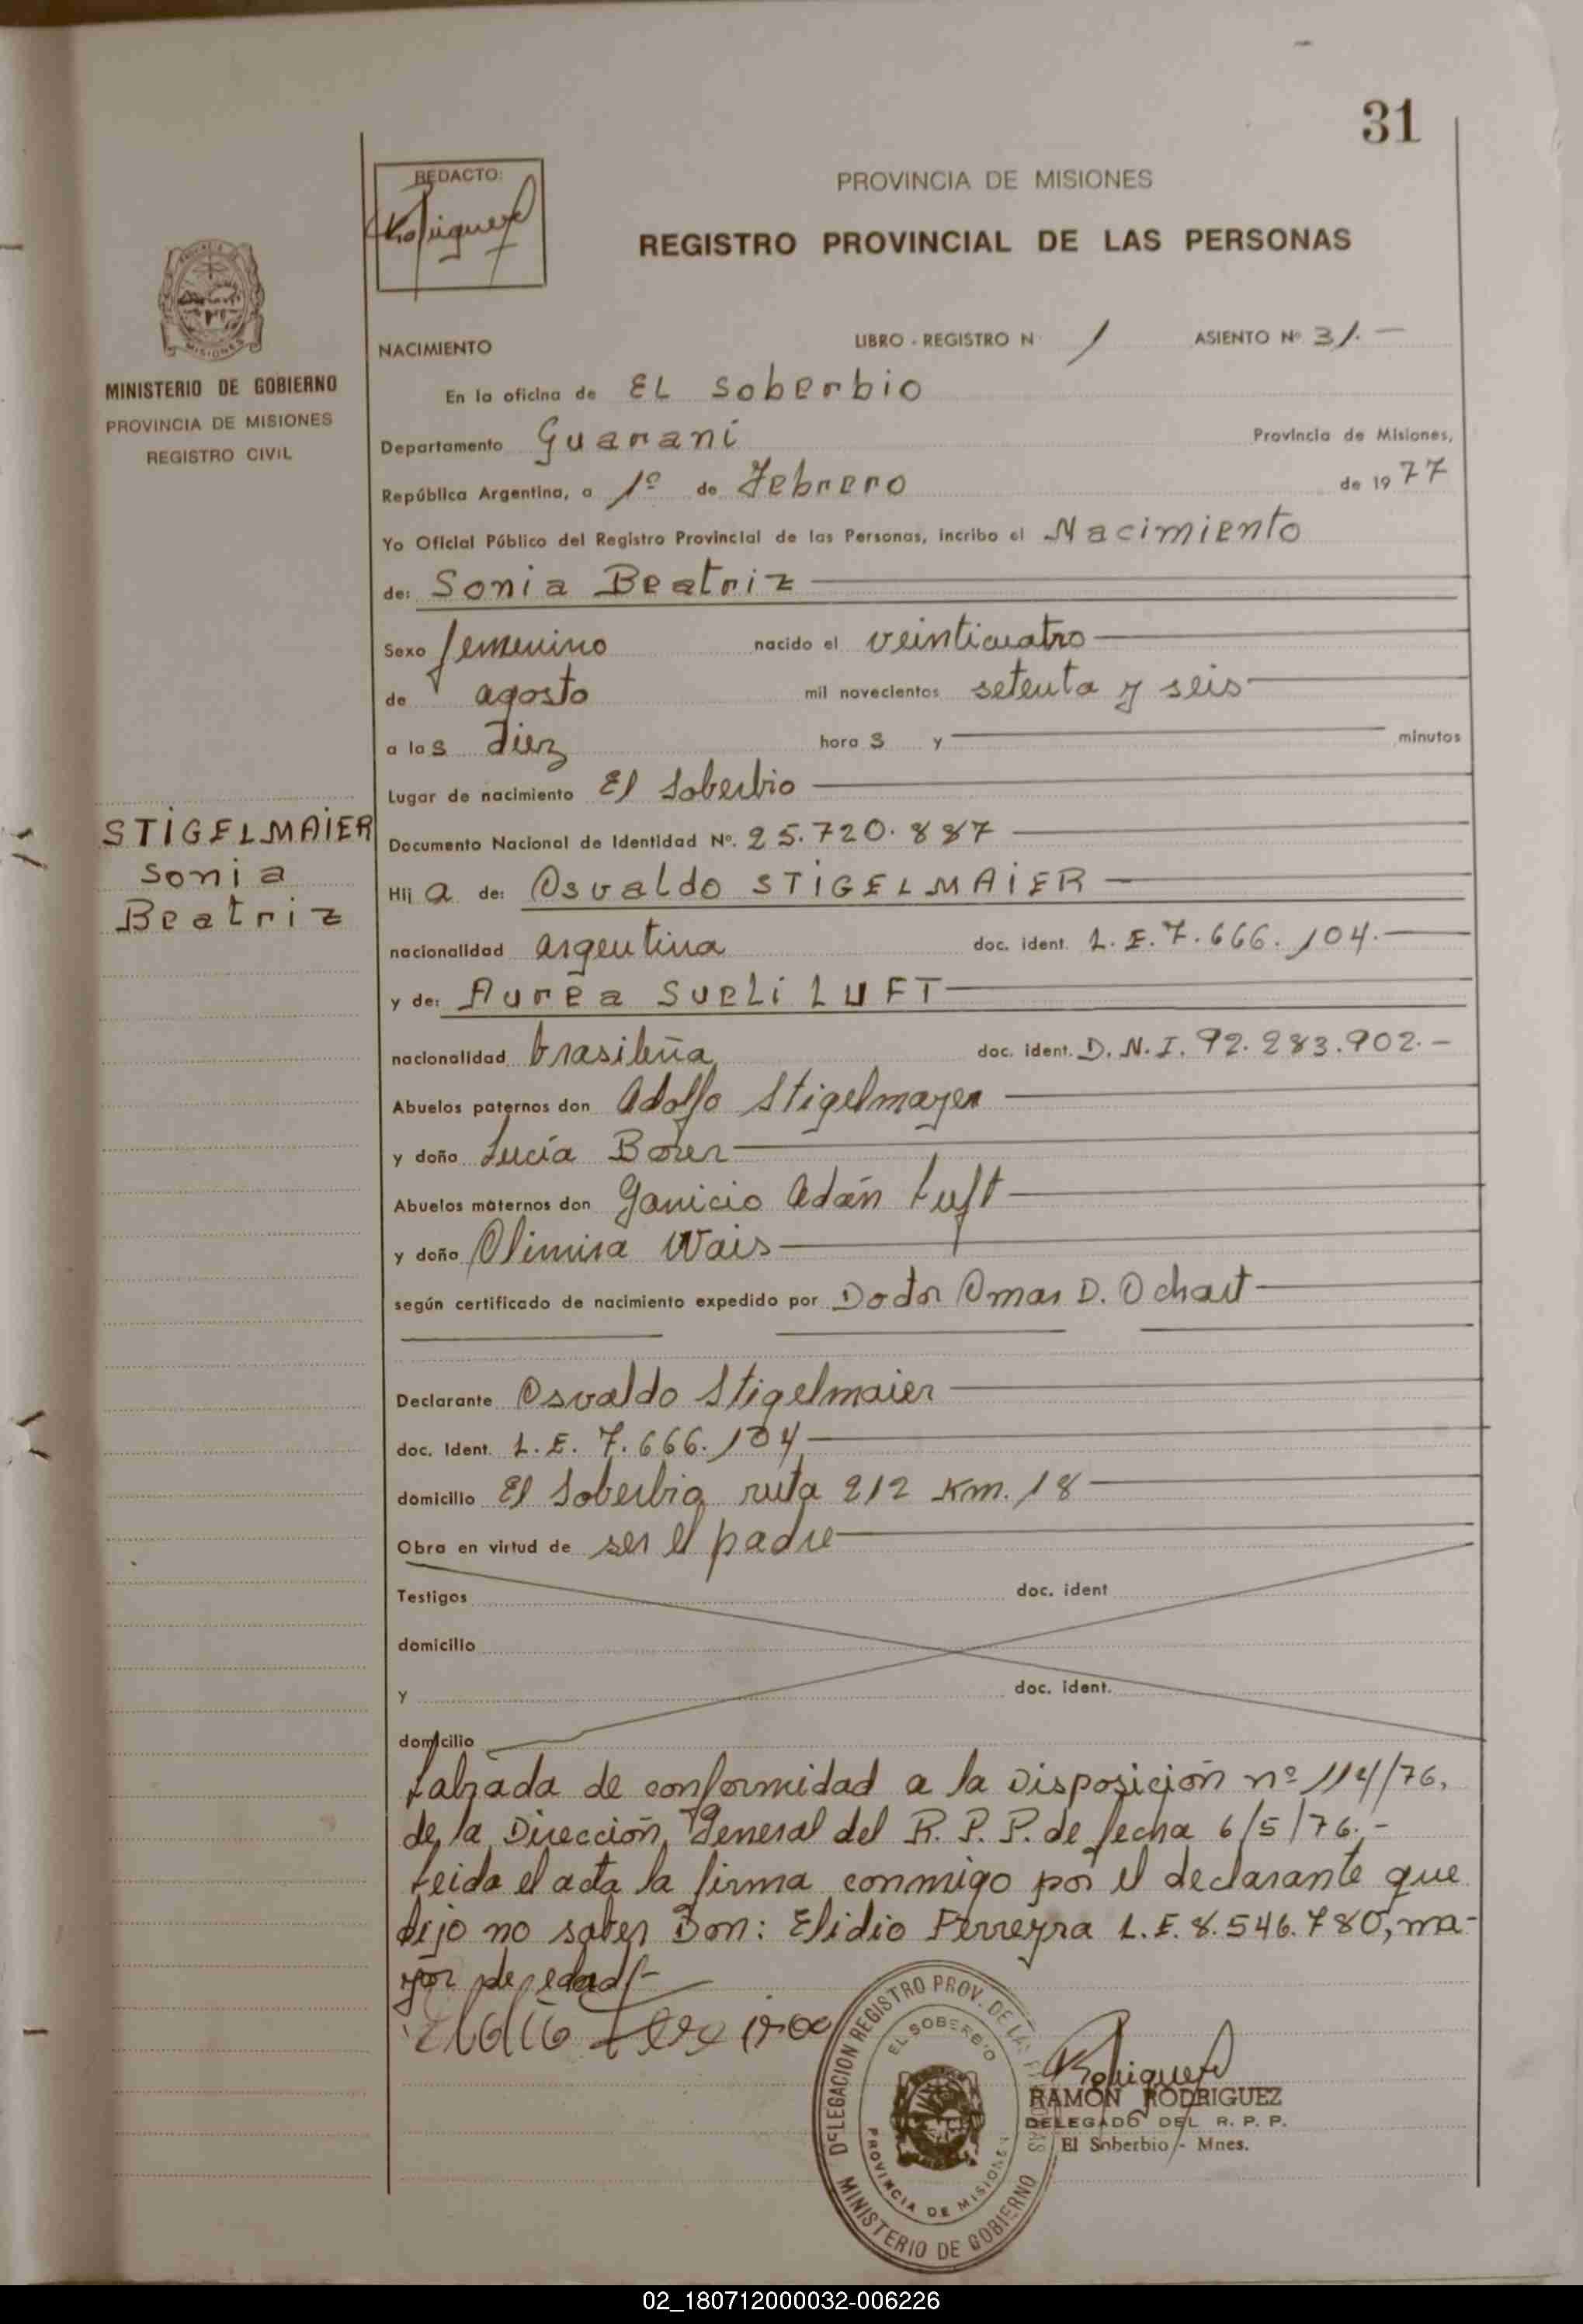 31
REDACTO:
Rodriguez
PROVINCIA DE MISIONES
REGISTRO PROVINCIAL DE LAS PERSONAS
MISIONES
MINISTERIO DE GOBIERNO
PROVINCIA DE MISIONES
REGISTRO CIVIL
NACIMIENTO LIBRO - REGISTRO N 1 ASIENTO Nº 31.-
En la oficina de EL Soberbio
Departamento Guaraní Provincia de Misiones,
República Argentina, a 1º de Febrero de 1977
Yo Oficial Público del Registro Provincial de las Personas, incribo el Nacimiento
de: Sonia Beatriz
Sexo femenino nacido el veinticuatro
de agosto mil novecientos setenta y seis
a las diez horas y minutos
Lugar de nacimiento El Soberbio
STIGELMAIER
Sonia
Beatriz
Documento Nacional de Identidad Nº. 25.720.887
Hija de: Osvaldo STIGELMAIER
nacionalidad argentina doc. ident. L.E. 7.666.104.-
y de: Aurea SUELI LUFT
nacionalidad brasileña doc. ident. D.N.I. 92.283.902.-
Abuelos paternos don Adolfo Stigelmayer
y doña Lucía
Abuelos maternos don Adán Luft
y doña Olimira Wais
según certificado de nacimiento expedido por Doctor Omar D.
Declarante Osvaldo Stigelmaier
doc. Ident. L.E. 7.666.104
domicilio El Soberbio, ruta 212 Km. 18
Obra en virtud de ser el padre
Testigos doc. ident
domicilio
y doc. ident.
domicilio
Labrada de conformidad a la Disposición nº 114/76,
de la Dirección General del R.P.P. de fecha 6/5/76.-
Leida el acta la firma conmigo por el declarante que
dijo no saber Don: Elidio Ferreyra L.E. 8.546.780, ma-
yor de edad/-
DELEGACION REGISTRO PROV. DE LAS PERSONAS
EL SOBERBIO
PROVINCIA DE MISIONES
MINISTERIO DE GOBIERNO
Rodriguez
RAMÓN RODRIGUEZ
DELEGADO DEL R. P. P.
El Soberbio - Mnes.
02_180712000032-006226